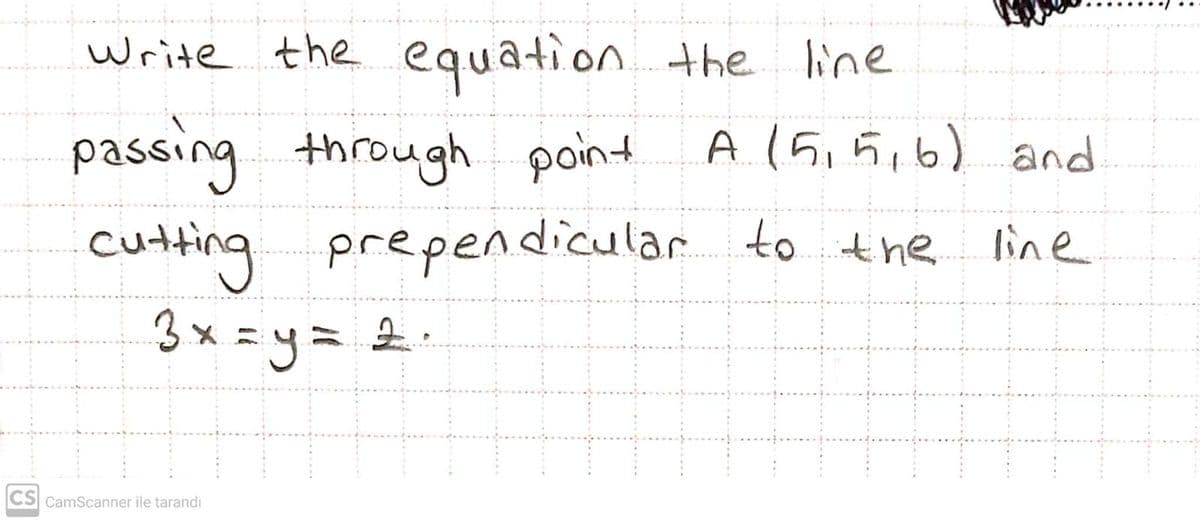 Write the equation the line
passing through point A (5,5,6) and
cutting prependicular to the line
3x=y=z.
CS CamScanner ile tarandı